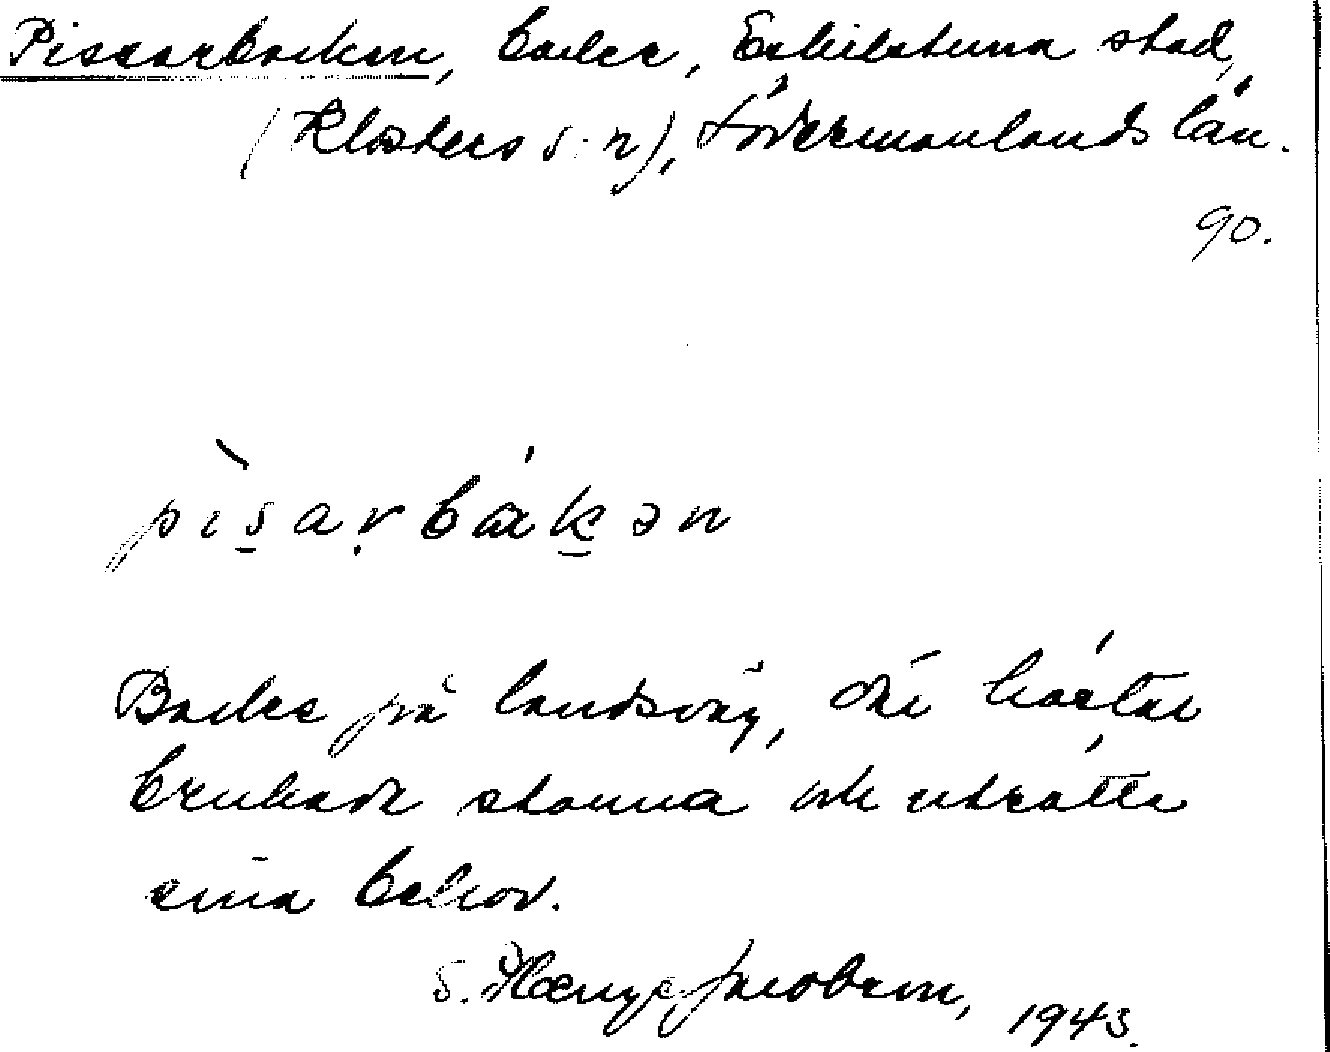 Pissarbacken, backe, Eskilstuna stad,
(Klosters s:n), Södermanlands län.
90.
pìs̲aṛbák̲ən
Backe på landsväg, där hästar
brukade stanna och uträtta
sina behov.
S. 1943.